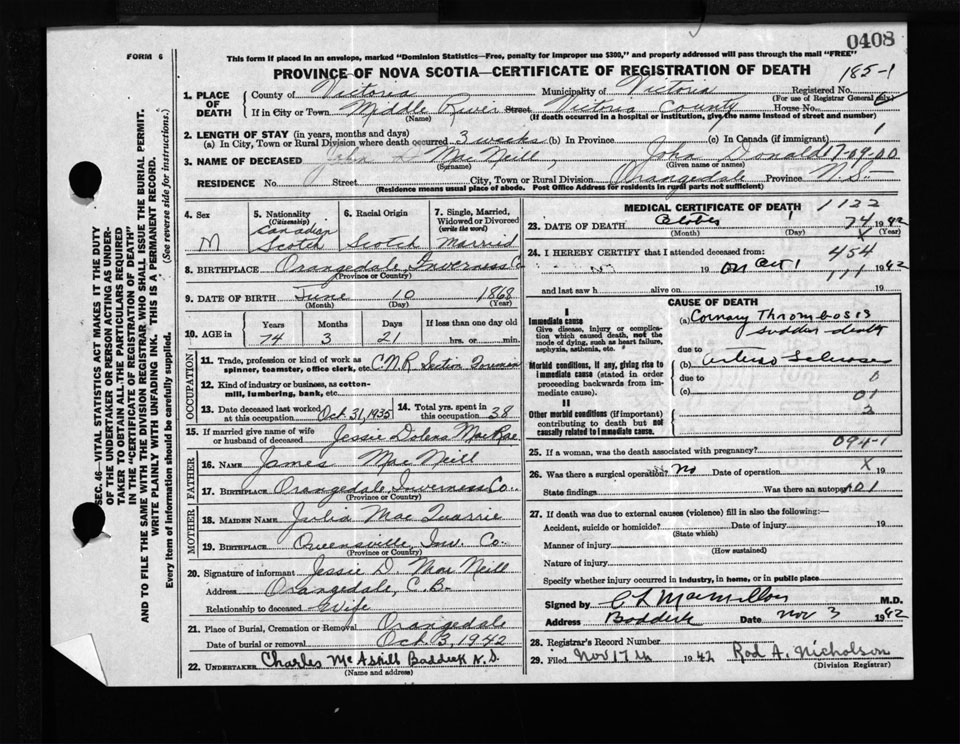 0408
FORM 6
This form if placed in an envelope, marked "Dominion Statistics—Free, penalty for improper use $300," and properly addressed will pass through the mail "FREE"
PROVINCE OF NOVA SCOTIA—CERTIFICATE OF REGISTRATION OF DEATH
185-1
1. PLACE OF DEATH
County of Victoria Municipality of Victoria Registered No.
(For use of Registrar General only)
If in City or Town Middle River Street Victoria County House No.
(Name) (If death occurred in a hospital or institution, give the name instead of street and number)
2. LENGTH OF STAY (in years, months and days)
(a) In City, Town or Rural Division where death occurred 3 weeks (b) In Province (c) In Canada (if immigrant) 1
3. NAME OF DECEASED MacNeill, John Donald 17-09-00
(Surname) (Given name or names)
RESIDENCE No. Street City, Town or Rural Division Orangedale Province N.S.
(Residence means usual place of abode. Post Office Address for residents in rural parts not sufficient)
4. Sex
M
5. Nationality
(Citizenship)
Canadian
Scotch
6. Racial Origin
Scotch
7. Single, Married, Widowed or Divorced
(write the word)
Married
8. BIRTHPLACE Orangedale, Inverness Co
(Province or Country)
9. DATE OF BIRTH June 10 1868
(Month) (Day) (Year)
10. AGE in
Years Months Days If less than one day old
74 3 21 hrs. or min.
OCCUPATION
11. Trade, profession or kind of work as spinner, teamster, office clerk, etc. C.N.R. Section Foreman
12. Kind of industry or business, as cotton-mill, lumbering, bank, etc.
13. Date deceased last worked at this occupation Oct. 31, 1935
14. Total yrs. spent in this occupation 38
15. If married give name of wife or husband of deceased Jessie Dolena MacRae
FATHER
16. NAME James MacNeill
17. BIRTHPLACE Orangedale, Inverness Co.
MOTHER
18. MAIDEN NAME Julia MacQuarrie
19. BIRTHPLACE Queensville, Inv. Co.
(Province or Country)
20. Signature of informant Jessie D. MacNeill
Address Orangedale, C.B.
Relationship to deceased Wife
21. Place of Burial, Cremation or Removal Orangedale
Date of burial or removal Oct 3, 1942
22. UNDERTAKER Charles McAskill Baddeck N.S.
(Name and address)
MEDICAL CERTIFICATE OF DEATH 1122
23. DATE OF DEATH 1 74 1942
(Month) (Day) (Year)
24. I HEREBY CERTIFY that I attended deceased from: 454
19 on Oct 1 111 1942
and last saw h alive on 19
CAUSE OF DEATH
I
Immediate cause
Give disease, injury or complication which caused death, not the mode of dying, such as heart failure, asphyxia, asthenia, etc.
(a) Cornary Thrombosis
sudden death
due to
Morbid conditions, if any, giving rise to immediate cause (stated in order proceeding backwards from immediate cause).
(b)
due to 0
(c) 01
II
Other morbid conditions (if important) contributing to death but not causally related to immediate cause.
2
25. If a woman, was the death associated with pregnancy? 094-1
26. Was there a surgical operation? no Date of operation X 19
State findings Was there an autopsy? 101
27. If death was due to external causes (violence) fill in also the following:—
Accident, suicide or homicide? Date of injury 19
(State which)
Manner of injury
(How sustained)
Nature of injury
Specify whether injury occurred in industry, in home, or in public place
Signed by C L MacMillan M.D.
Address Baddeck Date Nov 3 1942
28. Registrar's Record Number
29. Filed Nov 17th 1942 Rod A. Nicholson
(Division Registrar)
SEC. 46—VITAL STATISTICS ACT MAKES IT THE DUTY
OF THE UNDERTAKER OR PERSON ACTING AS UNDERTAKER
TO OBTAIN ALL THE PARTICULARS REQUIRED
IN THE "CERTIFICATE OF REGISTRATION OF DEATH"
AND TO FILE THE SAME WITH THE DIVISION REGISTRAR WHO SHALL ISSUE THE BURIAL PERMIT.
WRITE PLAINLY WITH UNFADING INK, THIS IS A PERMANENT RECORD.
Every item of information should be carefully supplied. (See reverse side for instructions.)